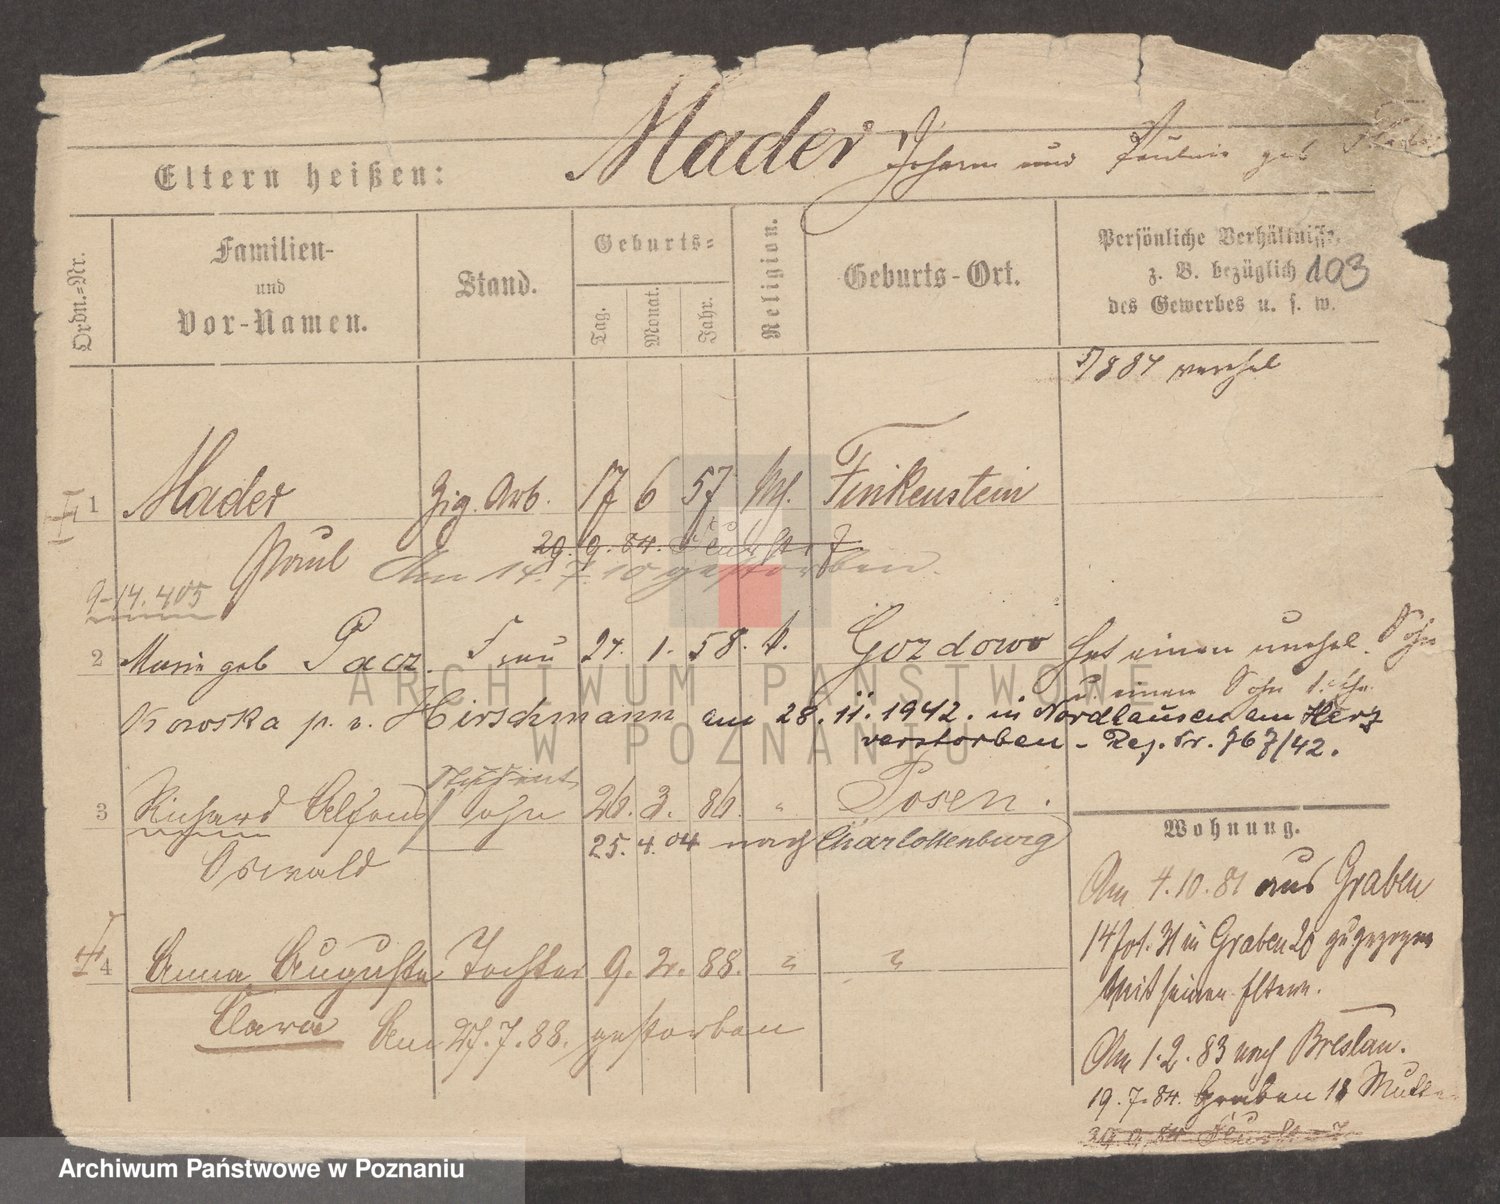 Mader Johann und Pauline geb
Eltern heißen:
Ordn.-Nr.
Familien-
und
Vor-Namen.
Stand.
Geburts-
Tag.
Monat.
Jahr.
Religion.
Geburts-Ort.
Persönliche Verhältnisse,
z. B. bezüglich 103
des Gewerbes u. s. w.
1 Mader Zig. Arb. 17 6 57 Finkenstein
Paul
29. 9. 84.
Am 14. 7. 10 gestorben.
9-14.405
2 Marie geb Pacz. Frau 27. 1. 58. k. Gozdowo Hat einen unehel. Sohn
u einen Sohn
Kowoska p. v. Hirschmann am 28. 11. 1942. in Nordhausen am Harz
verstorben - Reg. Nr. 767/42.
3 Richard Alfons Student Sohn 26. 3. 86. " Posen.
Oswald
25. 4. 04 nach Charlottenburg
4 Anna Auguste Tochter 9. 2. 88. " "
Clara Am 27. 7. 88. gestorben
Wohnung.
Am 4. 10. 81 aus Graben
14 in Graben 20 zugezogen
Mit seinen Eltern.
Am 1. 2. 83 nach Breslau.
19. 7. 84. Graben 18
ARCHIWUM PAŃSTWOWE
W POZNANIU
Archiwum Państwowe w Poznaniu